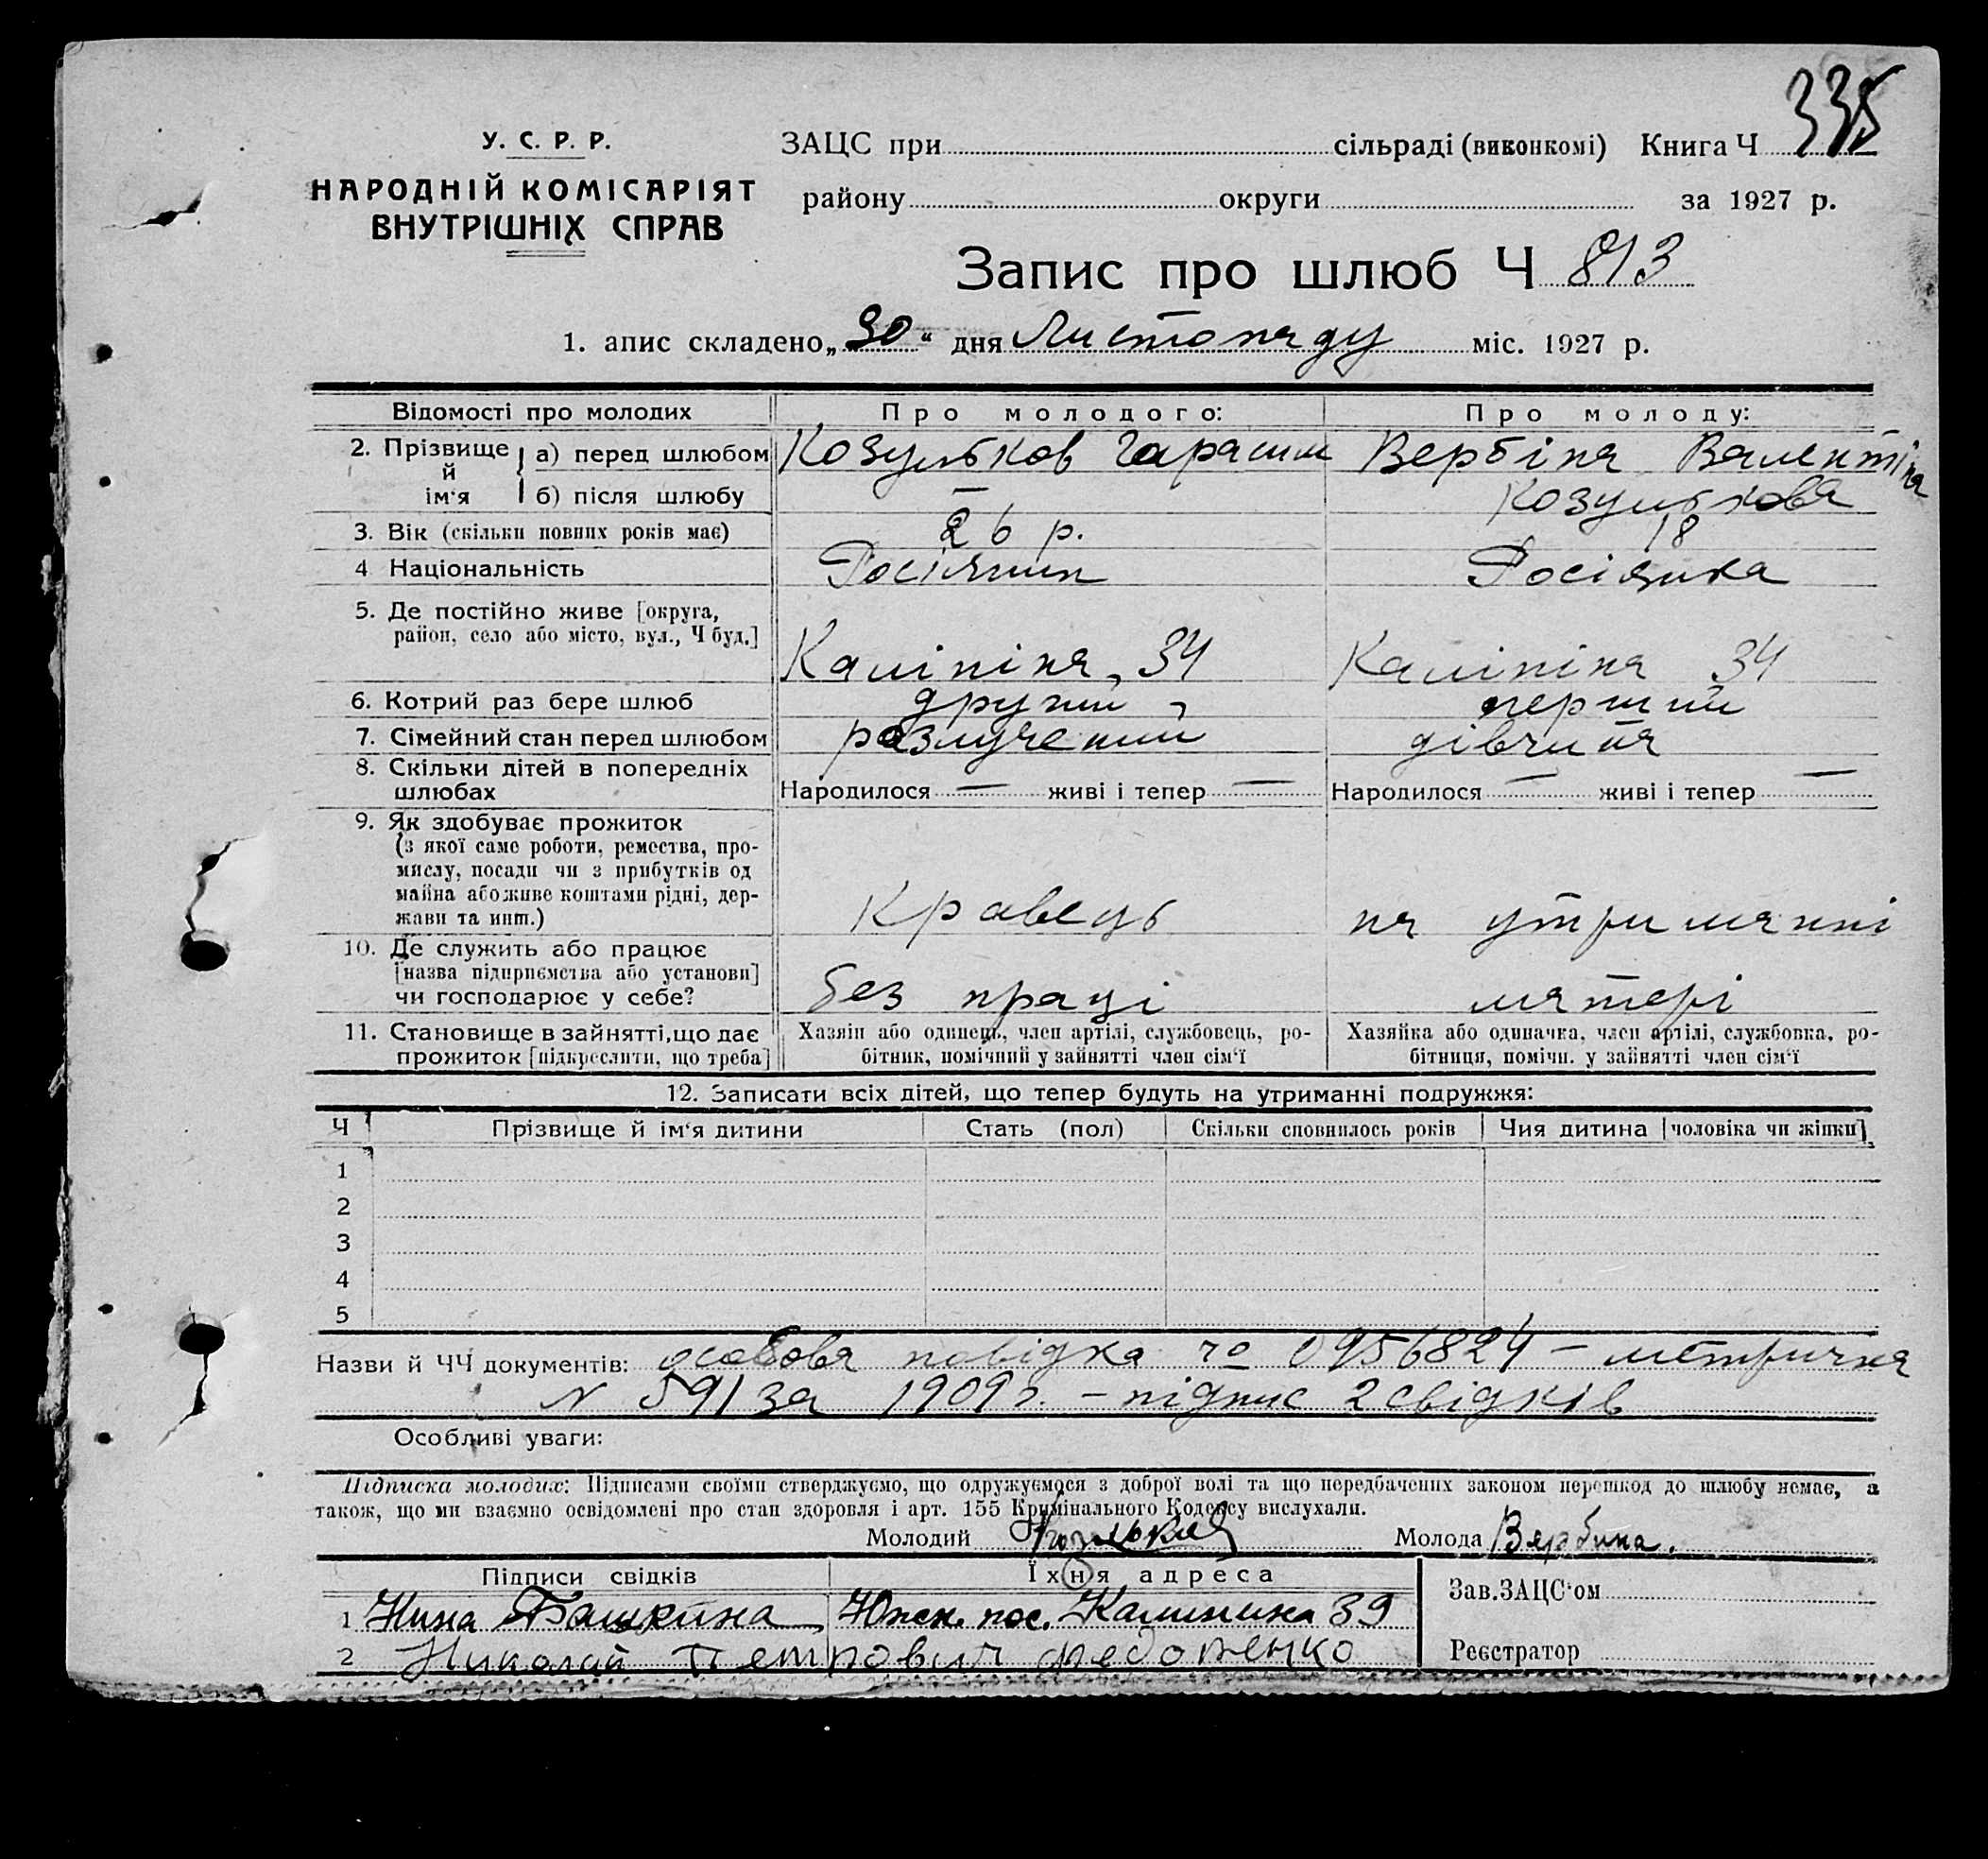 335
У. С. Р. Р.
НАРОДНІЙ КОМІСАРІЯТ
ВНУТРІШНІХ СПРАВ
ЗАЦС при сільраді (виконкомі) Книга Ч
району округи за 1927 р.
Запис про шлюб Ч 813
1. апис складено „30“ дня Листопаду міс. 1927 р.
Відомості про молодих Про молодого: Про молоду:
2. Прізвище й ім‘я а) перед шлюбом Козульков Гарасим Вербіна Валентіна
б) після шлюбу — Козулькова
3. Вік (скільки повних років має) 26 р. 18
4 Національність Росіянин Росіянка
5. Де постійно живе [округа,
район, село або місто, вул., Ч буд.] Калініна, 34 Калініна 34
6. Котрий раз бере шлюб другий перший
7. Сімейний стан перед шлюбом розлучений дівчина
8. Скільки дітей в попередніх
шлюбах Народилося — живі і тепер — Народилося — живі і тепер —
9. Як здобуває прожиток
(з якої саме роботи, ремества, про-
мислу, посади чи з прибутків од
майна або живе коштами рідні, дер-
жави та инш.) Кравець на утриманні
10. Де служить або працює
[назва підприємства або установи]
чи господарює у себе? без праці матері
11. Становище в зайнятті, що дає
прожиток [підкреслити, що треба]
Хазяїн або одинець, член артілі, службовець, ро-
бітник, помічний у зайнятті член сім‘ї
Хазяйка або одиначка, член артілі, службовка, ро-
бітниця, помічн. у зайнятті член сім‘ї
12. Записати всіх дітей, що тепер будуть на утриманні подружжя:
Ч Прізвище й ім‘я дитини Стать (пол) Скільки сповнилось років Чия дитина [чоловіка чи жінки]
1
2
3
4
5
Назви й ЧЧ документів: особова повідка чо 0956824 – метрична
N 591 за 1909 г. – підпис 2 свідків
Особливі уваги:
Підписка молодих: Підписами своїми стверджуємо, що одружуємося з доброї волі та що передбачених законом перешкод до шлюбу немає, а
також, що ми взаємно освідомлені про стан здоровля і арт. 155 Кримінального Кодексу вислухали.
Молодий Козульков Молода Вербина.
Підписи свідків Їхня адреса
1 Нина Башкина Южн. пос. Калинина 39
2 Николай Петрович Федоренко
Зав.ЗАЦС‘ом
Реєстратор